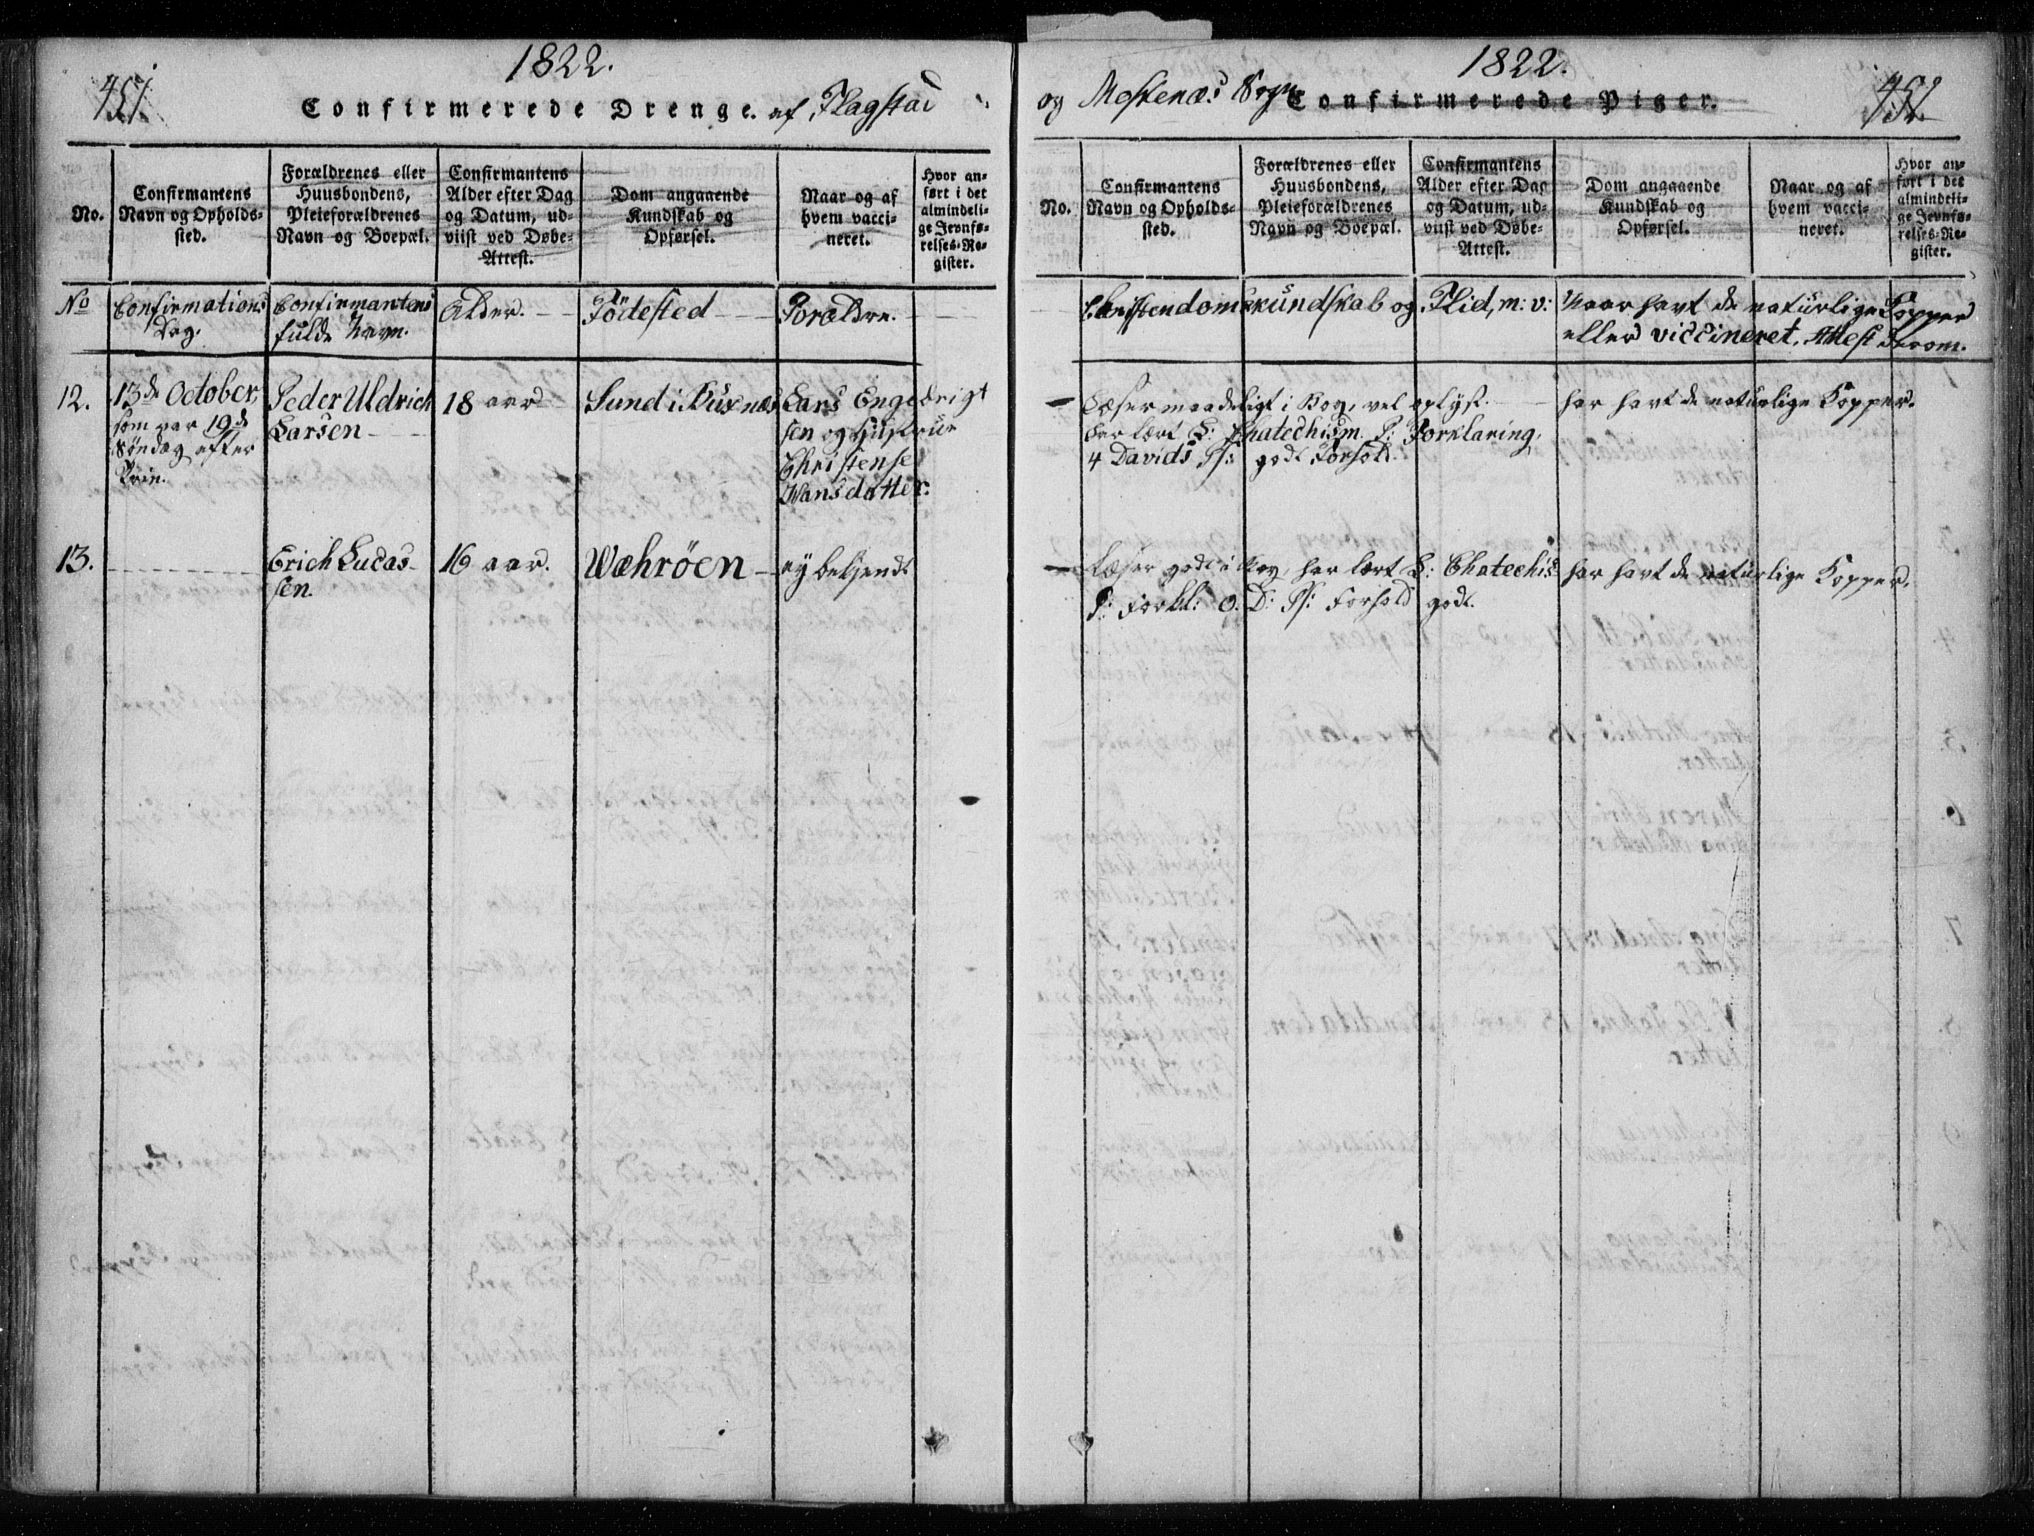 1822.
451.
Confirmerede Drenge. af Flagstad
No.
Confirmantens
Navn og Opholds-
sted.
Forældrenes eller
Huusbondens,
Pleieforældrenes
Navn og Boepæl.
Confirmantens
Alder efter Dag
og Datum, ud-
viist ved Døbe-
Attest.
Dom angaaende
Kundskab og
Opførsel.
Naar og af
hvem vacci-
neret.
Hvor an-
ført i det
almindeli-
ge Jevnfø-
relses-Re-
gister.
No
Confirmations
Dag.
Confirmantens
fulde Navn.
Alder.
Födested
Forældre.
12.
13de October,
som var 19de
Søndag efter
Trin.
Peder Uldrich
Larsen
18 aar
Sund i Buxnæs
Lars Engebrigt
sen og Hustrue
Christense
Hansdatter.
13.
Erich Lucas-
sen.
16 aar.
Wæhröen
ey bekjendt
1822.
452.
og Moskenæs Sogn
Confirmerede Piger.
No.
Confirmantens
Navn og Opholds-
sted.
Forældrenes eller
Huusbondens,
Pleieforældrenes
Navn og Boepæl.
Confirmantens
Alder efter Dag
og Datum, ud-
viist ved Døbe-
Attest.
Dom angaaende
Kundskab og
Opførsel.
Naar og af
hvem vacci-
neret.
Hvor an-
ført i det
almindeli-
ge Jevnfø-
relses-Re-
gister.
Christendomskundskab og Flid, m: v:
Naar havt de naturlige Kopper
eller viccineret, Attest derom.
Læser maadeligt i Bog, vel oplyst.
har lært L: Chatechism. P: Forklaring,
4 Davids Ps: godt Forhold.
har havt de naturlige Kopper.
Læser godt i Bog, har lært L: Chatechis
P: Forkl: o: D: Ps: Forhold godt.
har havt de naturlige Kopper.